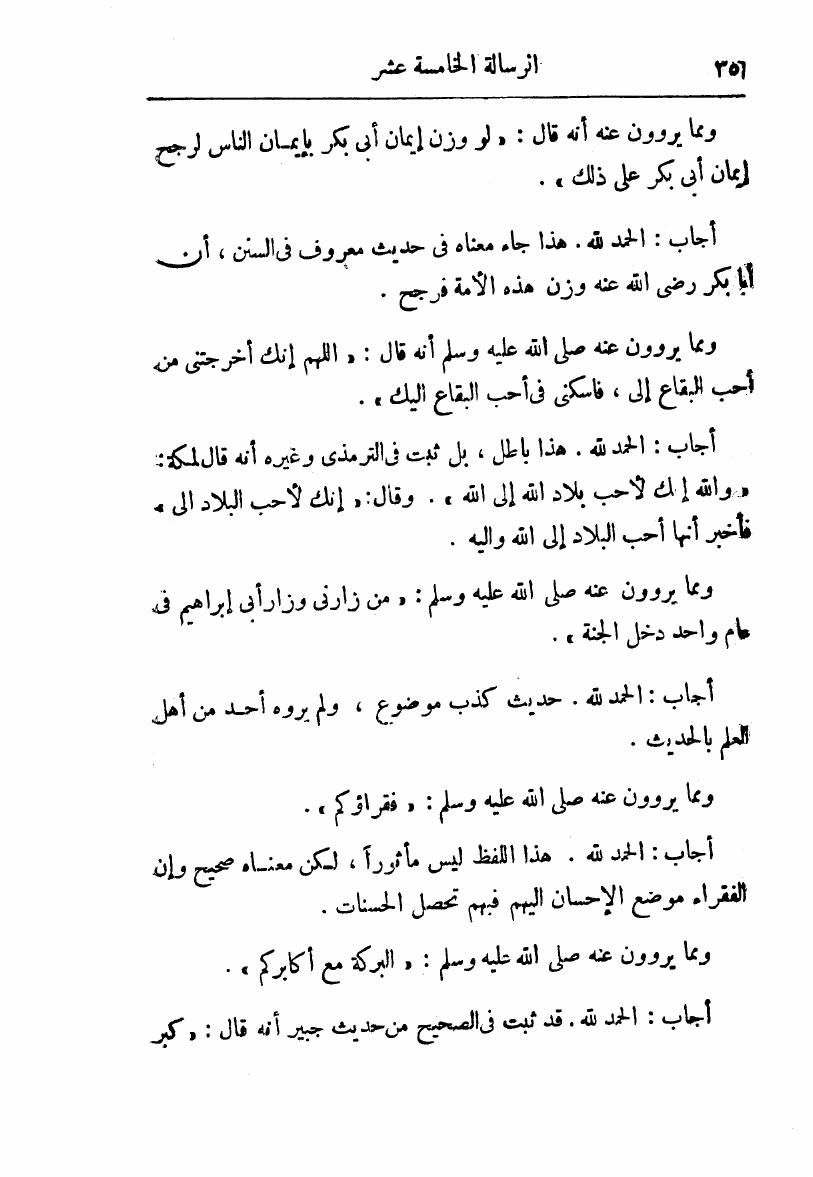 ٣٥٦ الرسالة الخامسة عشر
ومما يروون عنه أنه قال : « لو وزن إيمان أبى بكر بإيمـان الناس لرجح
إيمان أبى بكر على ذلك » .
أجاب : الحمد لله . هذا جاء معناه فى حديث معروف فى السنن ، أن
أبا بكر رضى الله عنه وزن هذه الأمة فرجح .
ومما يروون عنه صلى الله عليه وسلم أنه قال : « اللهم إنك أخرجتنى من
أحب البقاع إلى ، فاسكنى فى أحب البقاع اليك » .
أجاب : الحمد لله . هذا باطل ، بل ثبت فى الترمذى وغيره أنه قال لمكة :
« والله إنك لأحب بلاد الله إلى الله » . وقال : « إنك لأحب البلاد الى »
فأخبر أنها أحب البلاد إلى الله واليه .
ومما يروون عنه صلى الله عليه وسلم : « من زارنى وزار أبى إبراهيم فى
عام واحد دخل الجنة » .
أجاب : الحمد لله . حديث كذب موضوع ، ولم يروه أحـد من أهل
العلم بالحديث .
ومما يروون عنه صلى الله عليه وسلم : « فقراؤكم » .
أجاب : الحمد لله . هذا اللفظ ليس مأثوراً ، لـكن معنـاه صحيح وإن
الفقراء موضع الإحسان اليهم فبهم تحصل الحسنات .
ومما يروون عنه صلى الله عليه وسلم : « البركة مع أكابركم » .
أجاب : الحمد لله . قد ثبت فى الصحيح من حديث جبير أنه قال : « كبر